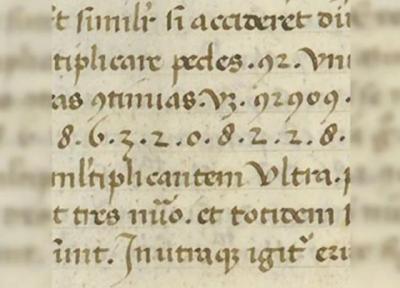 t similr si accideret du
tiplicare pedes .92. vni
as 9tinuas. vz. 92909.
8.6.3.2.0.8.2.2.8.
ml'tiplicantem Vltra.
t tres nūo. et totidem
unt. In utraqz igit' eri